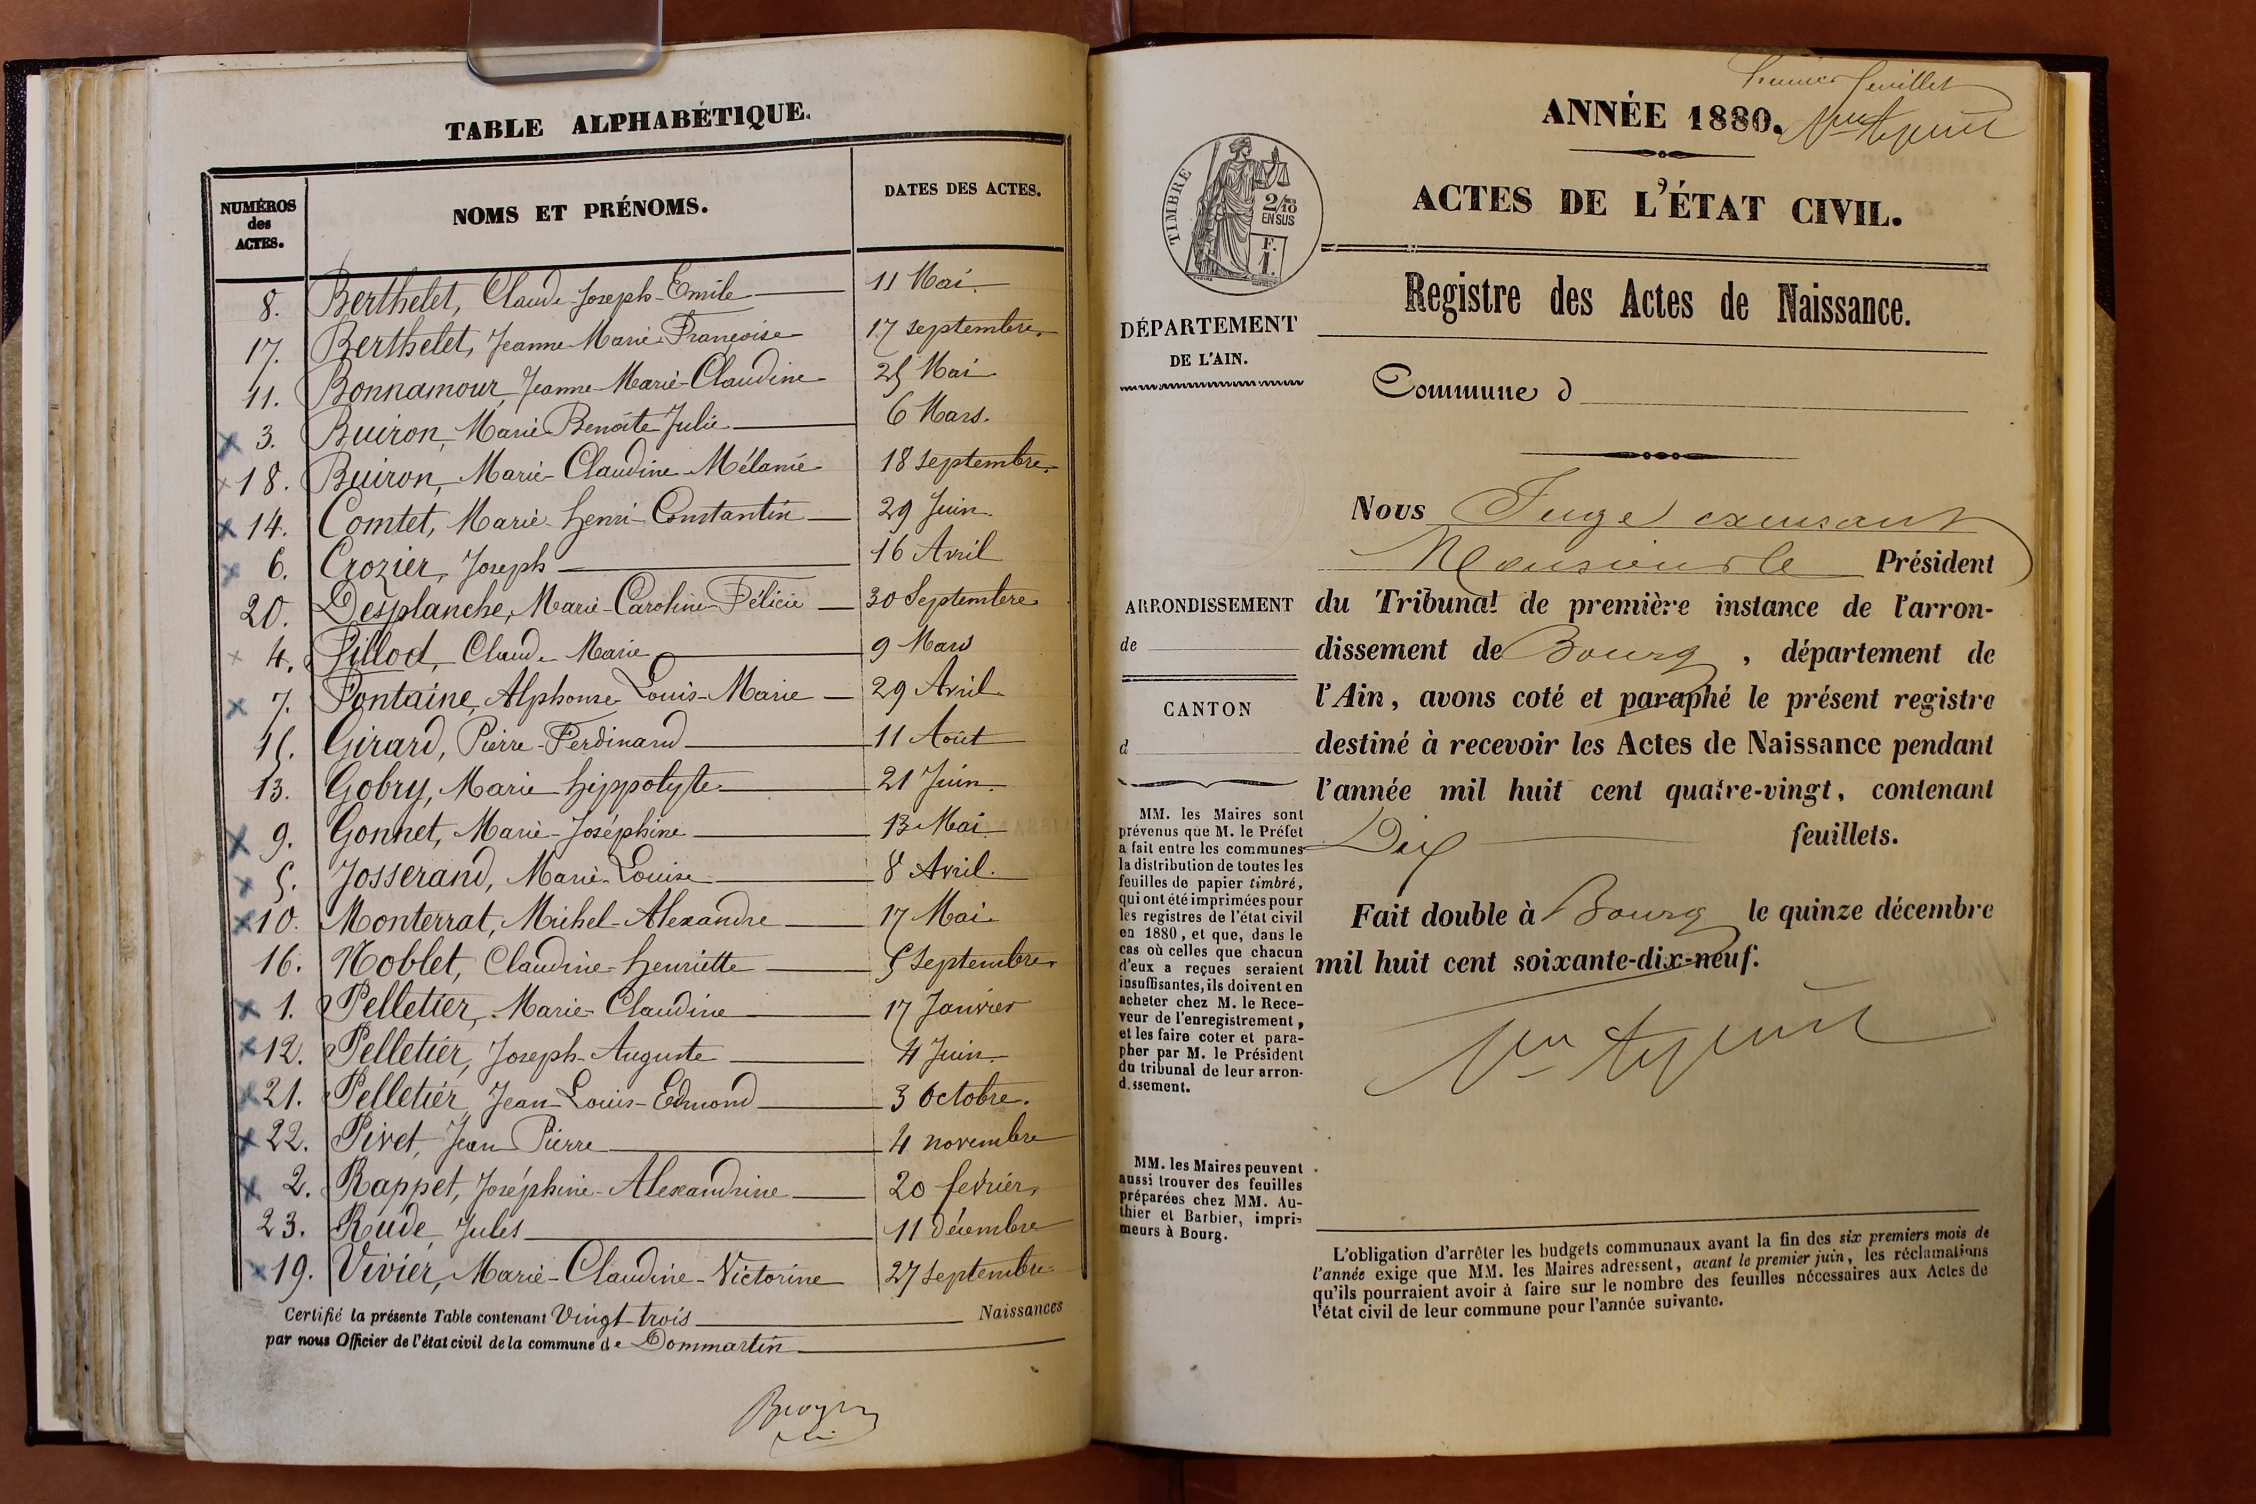 TABLE ALPHABÉTIQUE.
NUMÉROS des ACTES.
NOMS ET PRÉNOMS.
DATES DES ACTES.
8. Berthelet, Claude-Joseph-Emile 11 Mai
17. Berthelet, Jeanne-Marie-Françoise 17 septembre.
11. Bonnamour, Jeanne-Marie-Claudine 25 Mai
x 3. Buiron, Marie-Benoîte-Julie 6 Mars.
x 18. Buiron, Marie-Claudine-Mélanie 18 septembre.
x 14. Comtet, Marie-henri-Constantin 29 Juin.
x 6. Crozier, Joseph 16 Avril
20. Desplanche, Marie-Caroline-Félicie 30 Septembre
x 4. Fillod, Claude-Marie 9 Mars
x 7. Fontaine, Alphonse-Louis-Marie 29 Avril
15. Girard, Pierre-Ferdinand 11 Août
13. Gobry, Marie-hippolyte 21 Juin.
x 9. Gonnet, Marie-Joséphine 13 Mai
x 5. Josserand, Marie-Louise 8 Avril.
x 10. Monterrat, Michel-Alexandre 17 Mai
16. Noblet, Claudine-henriette 5 septembre.
x 1. Pelletier, Marie-Claudine 17 Janvier
x 12. Pelletier, Joseph-Auguste 4 Juin.
x 21. Pelletier, Jean-Louis-Edmond 3 Octobre.
x 22. Pivet, Jean Pierre 4 novembre
x 2. Rappet, Joséphine-Alexandrine 20 février.
23. Rude, Jules 11 décembre
x 19. Vivier, Marie-Claudine-Victorine 27 septembre
Certifié la présente Table contenant Vingt-trois Naissances
par nous Officier de l'état civil de la commune de Dommartin
Premier feuillet
ANNÉE 1880.
ACTES DE L'ÉTAT CIVIL.
TIMBRE
2/10 EN SUS
F. 1.
DÉPARTEMENT
DE L'AIN.
Registre des Actes de Naissance.
Commune d
Nous Juge excusant
Monsieur le Président
du Tribunal de première instance de l'arron-
dissement de Bourg, département de
l'Ain, avons coté et paraphé le présent registre
destiné à recevoir les Actes de Naissance pendant
l'année mil huit cent quatre-vingt, contenant
Dix feuillets.
Fait double à Bourg le quinze décembre
mil huit cent soixante-dix-neuf.
ARRONDISSEMENT
de
CANTON
d
MM. les Maires sont
prévenus que M. le Préfet
a fait entre les communes
la distribution de toutes les
feuilles de papier timbré,
qui ont été imprimées pour
les registres de l'état civil
en 1880, et que, dans le
cas où celles que chacun
d'eux a reçues seraient
insuffisantes, ils doivent en
acheter chez M. le Rece-
veur de l'enregistrement,
et les faire coter et para-
pher par M. le Président
du tribunal de leur arron-
d.ssement.
MM. les Maires peuvent
aussi trouver des feuilles
préparées chez MM. Au-
thier et Barbier, impri-
meurs à Bourg.
L'obligation d'arrêter les budgets communaux avant la fin des six premiers mois de
l'année exige que MM. les Maires adressent, avant le premier juin, les réclamations
qu'ils pourraient avoir à faire sur le nombre des feuilles nécessaires aux Actes de
l'état civil de leur commune pour l'année suivante.